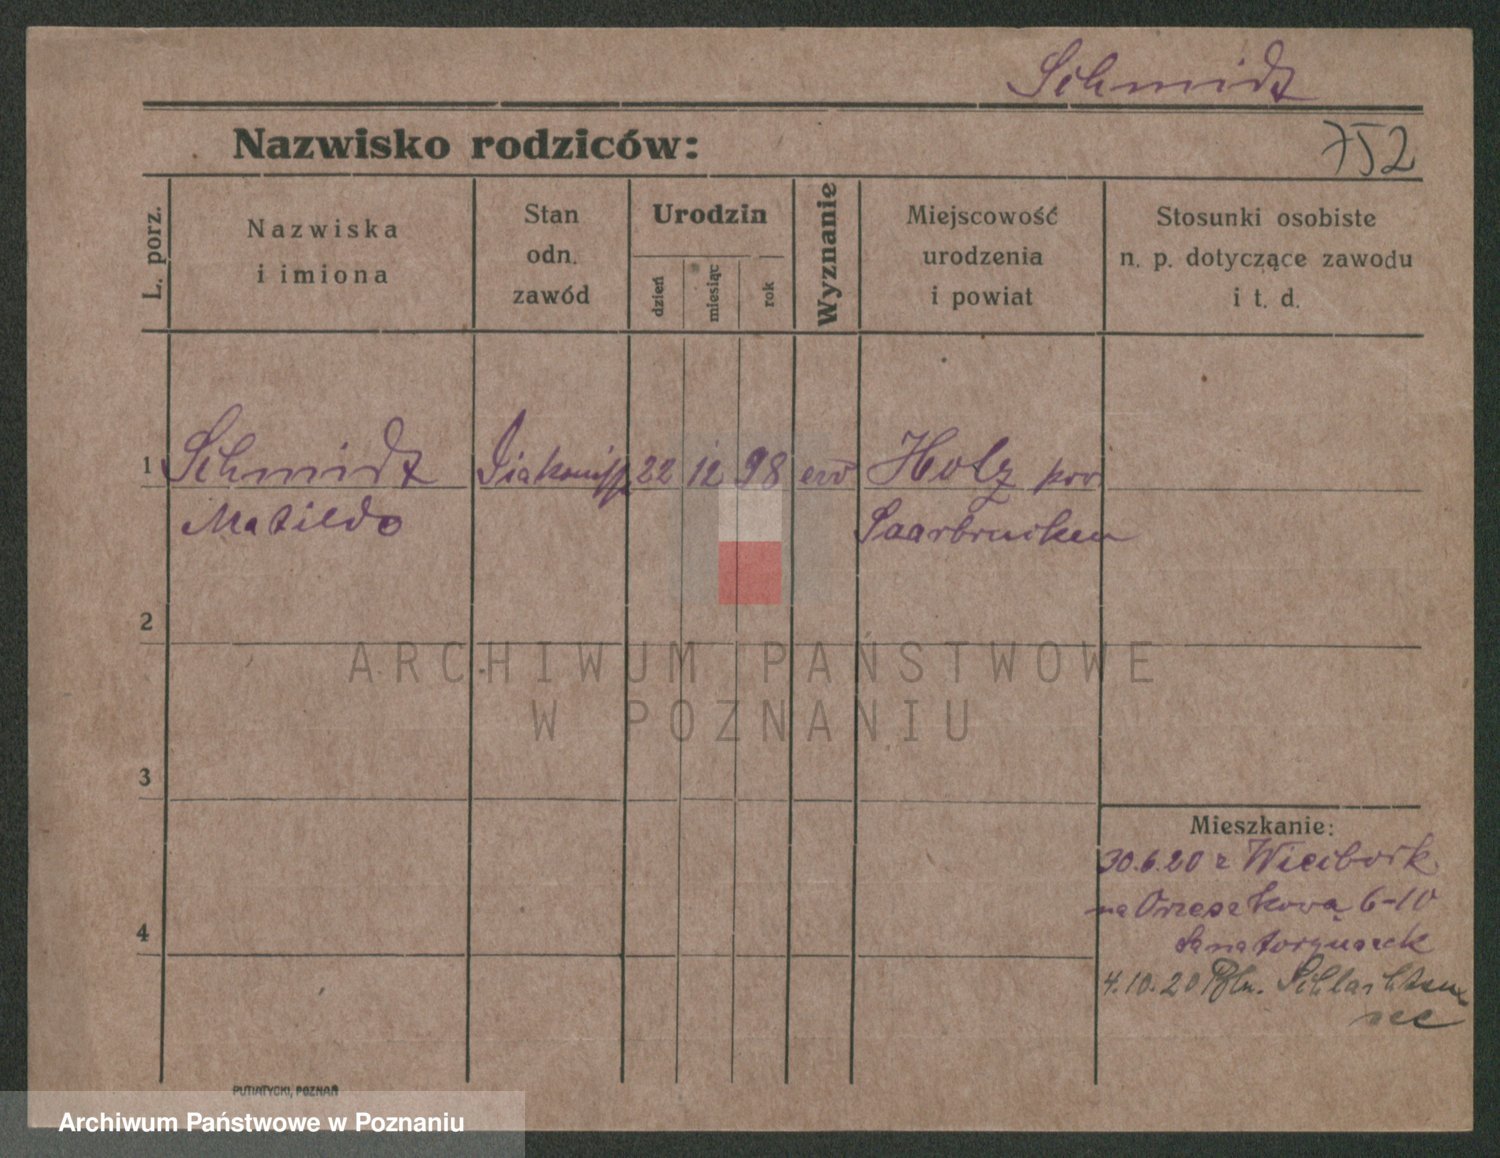 Schmidt
Nazwisko rodziców:
752
L. porz.
Nazwiska
i imiona
Stan
odn.
zawód
Urodzin
dzień
miesiąc
rok
Wyznanie
Miejscowość
urodzenia
i powiat
Stosunki osobiste
n. p. dotyczące zawodu
i t. d.
1 Schmidt Diakoniss 22 12 98 ew Holz pow
Matilde Saarbrucken
2
ARCHIWUM PAŃSTWOWE
W POZNANIU
3
4
Mieszkanie:
30.6.20 z Wiecbork
na Orzeszkowa 6-10
4.10.20 Bln. Schlachten
see
PUTIATYCKI, POZNAŃ
Archiwum Państwowe w Poznaniu